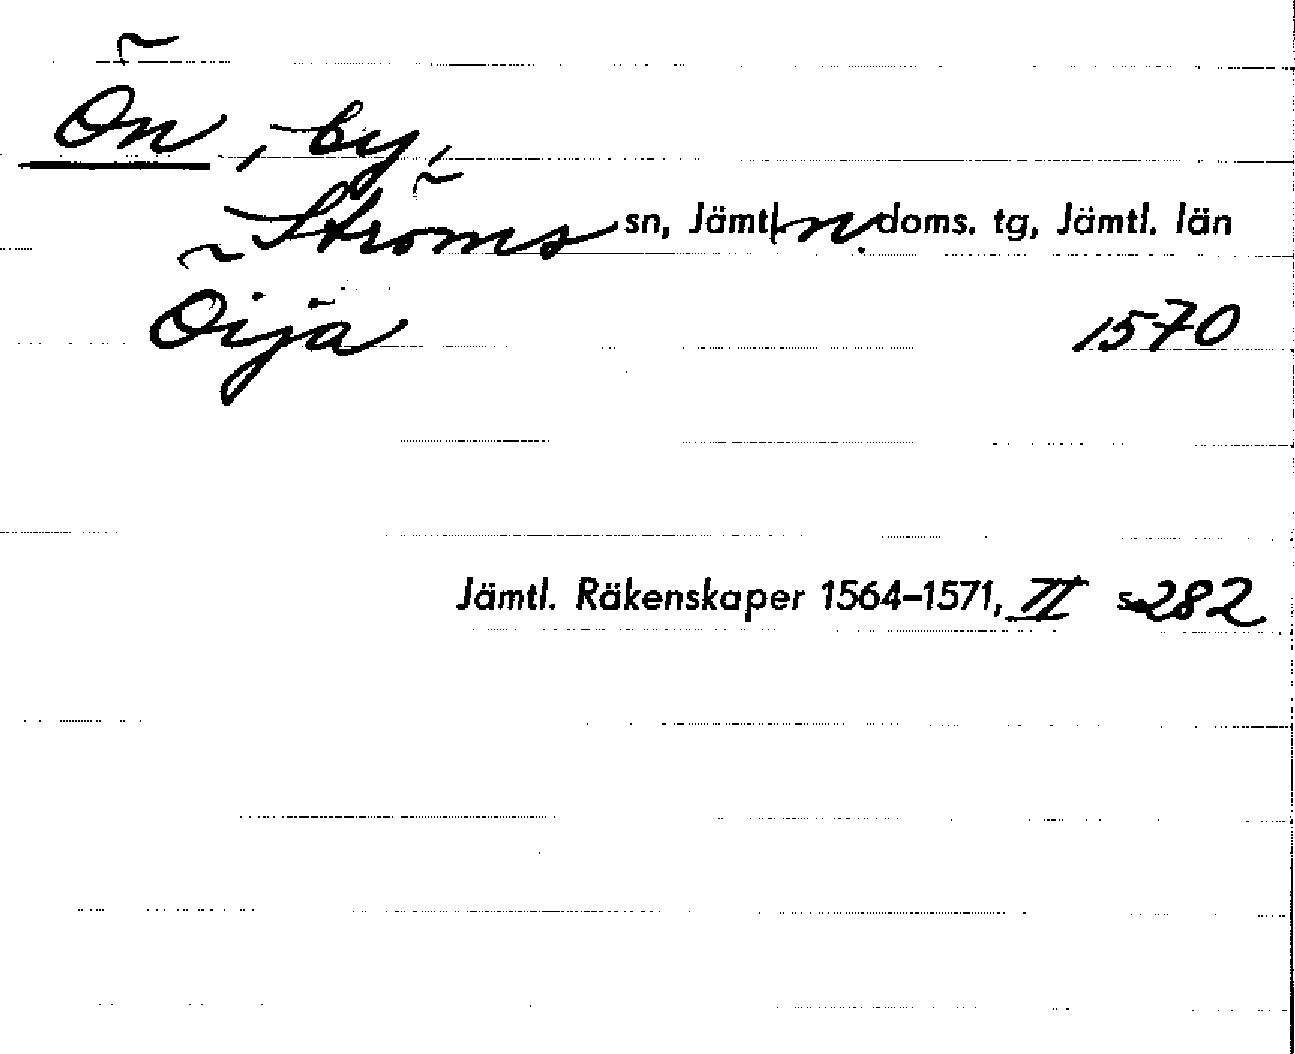 Ön, by,
Ströms sn, Jämtl. n. doms. tg, Jämtl. län
Öija 1570
Jämtl. Räkenskaper 1564–1571, II s. 282